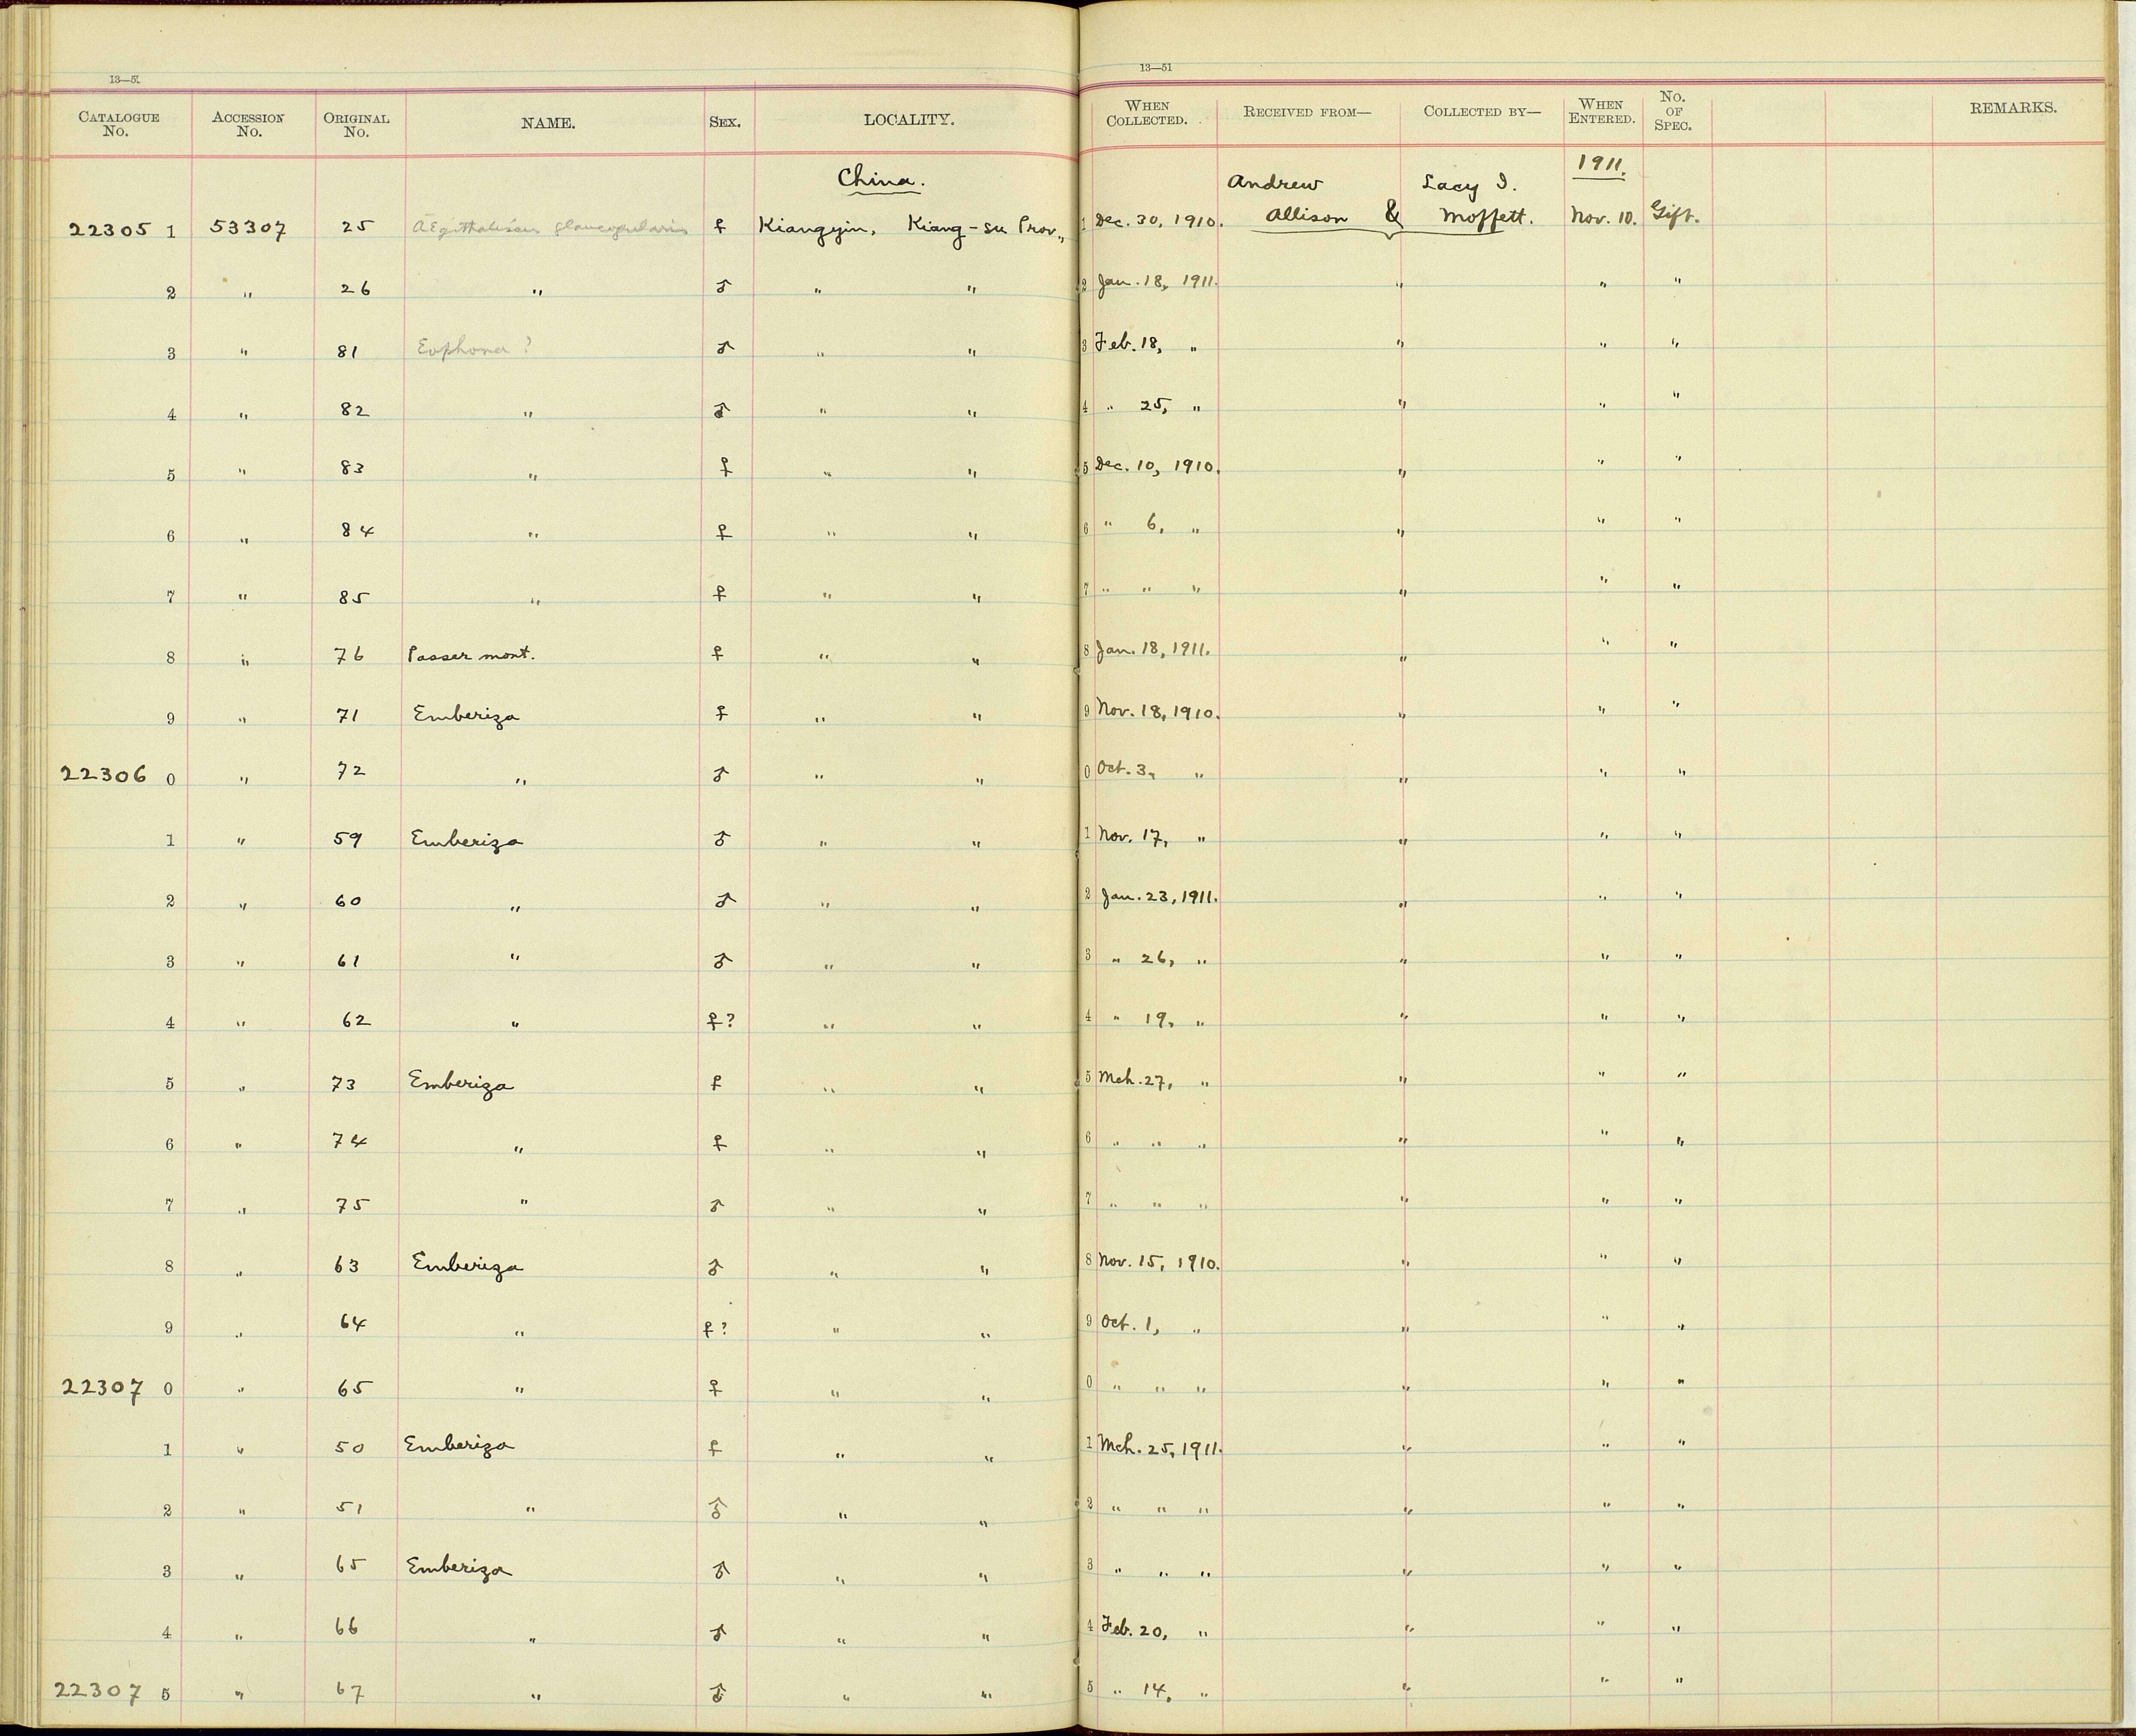 13—51
13—51
CATALOGUE No. ACCESSION No. ORIGINAL No. NAME. SEX. LOCALITY. WHEN COLLECTED. RECEIVED FROM— COLLECTED BY— WHEN ENTERED. No. OF SPEC. REMARKS.
China. Andrew Lacy I. 1911.
22305 1 53307 25 glaucogularis ♀ Kiangyin, Kiang-su Prov., 1 Dec. 30, 1910. Allison & Moffett. Nov. 10. Gift.
2 " 26 " ♂ " " 2 Jan. 18, 1911. " " "
3 " 81 Eophona ? ♂ " " 3 Feb. 18, " " " "
4 " 82 " ♂ " " 4 " 25, " " " "
5 " 83 " ♀ " " 5 Dec. 10, 1910. " " "
6 " 84 " ♀ " " 6 " 6, " " " "
7 " 85 " ♀ " " 7 " " " " " "
8 " 76 Passer mont. ♀ " " 8 Jan. 18, 1911. " " "
9 " 71 Emberiza ♀ " " 9 Nov. 18, 1910. " " "
22306 0 " 72 " ♂ " " 0 Oct. 3, " " " "
1 " 59 Emberiza ♂ " " 1 Nov. 17, " " " "
2 " 60 " ♂ " " 2 Jan. 23, 1911. " " "
3 " 61 " ♂ " " 3 " 26, " " " "
4 " 62 " ♀? " " 4 " 19, " " " "
5 " 73 Emberiza ♀ " " 5 Mch. 27, " " " "
6 " 74 " ♀ " " 6 " " " " " "
7 " 75 " ♂ " " 7 " " " " " "
8 " 63 Emberiza ♂ " " 8 Nov. 15, 1910. " " "
9 " 64 " ♀? " " 9 Oct. 1, " " " "
22307 0 " 65 " ♀ " " 0 " " " " " "
1 " 50 Emberiza ♀ " " 1 Mch. 25, 1911. " " "
2 " 51 " ♂ " " 2 " " " " " "
3 " 65 Emberiza ♂ " " 3 " " " " " "
4 " 66 " ♂ " " 4 Feb. 20, " " " "
22307 5 " 67 " ♂ " " 5 " 14, " " " "